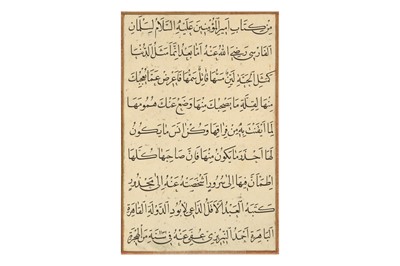 من كتاب امير المؤمنين عليه السلام لسلمان
الفارسي رضي الله عنه اما بعد انما مثل الدنيا
كمثل الحية لين مسها قاتل سمها فاعرض عما يعجبك
منها لقلة ما يصحبك منها وضع عنك همومها
لما ايقنت به من فراقها وكن انس ما يكون
لها احذر ما يكون منها فان صاحبها كلما
اطمأن فيها الى سرور اشخصته عنه الى محذور
كتبه العبد الاقل الداعي لابود الدولة القاهرة
الباهرة احمد النيريزي عفي عنه في سنة من الهجرة